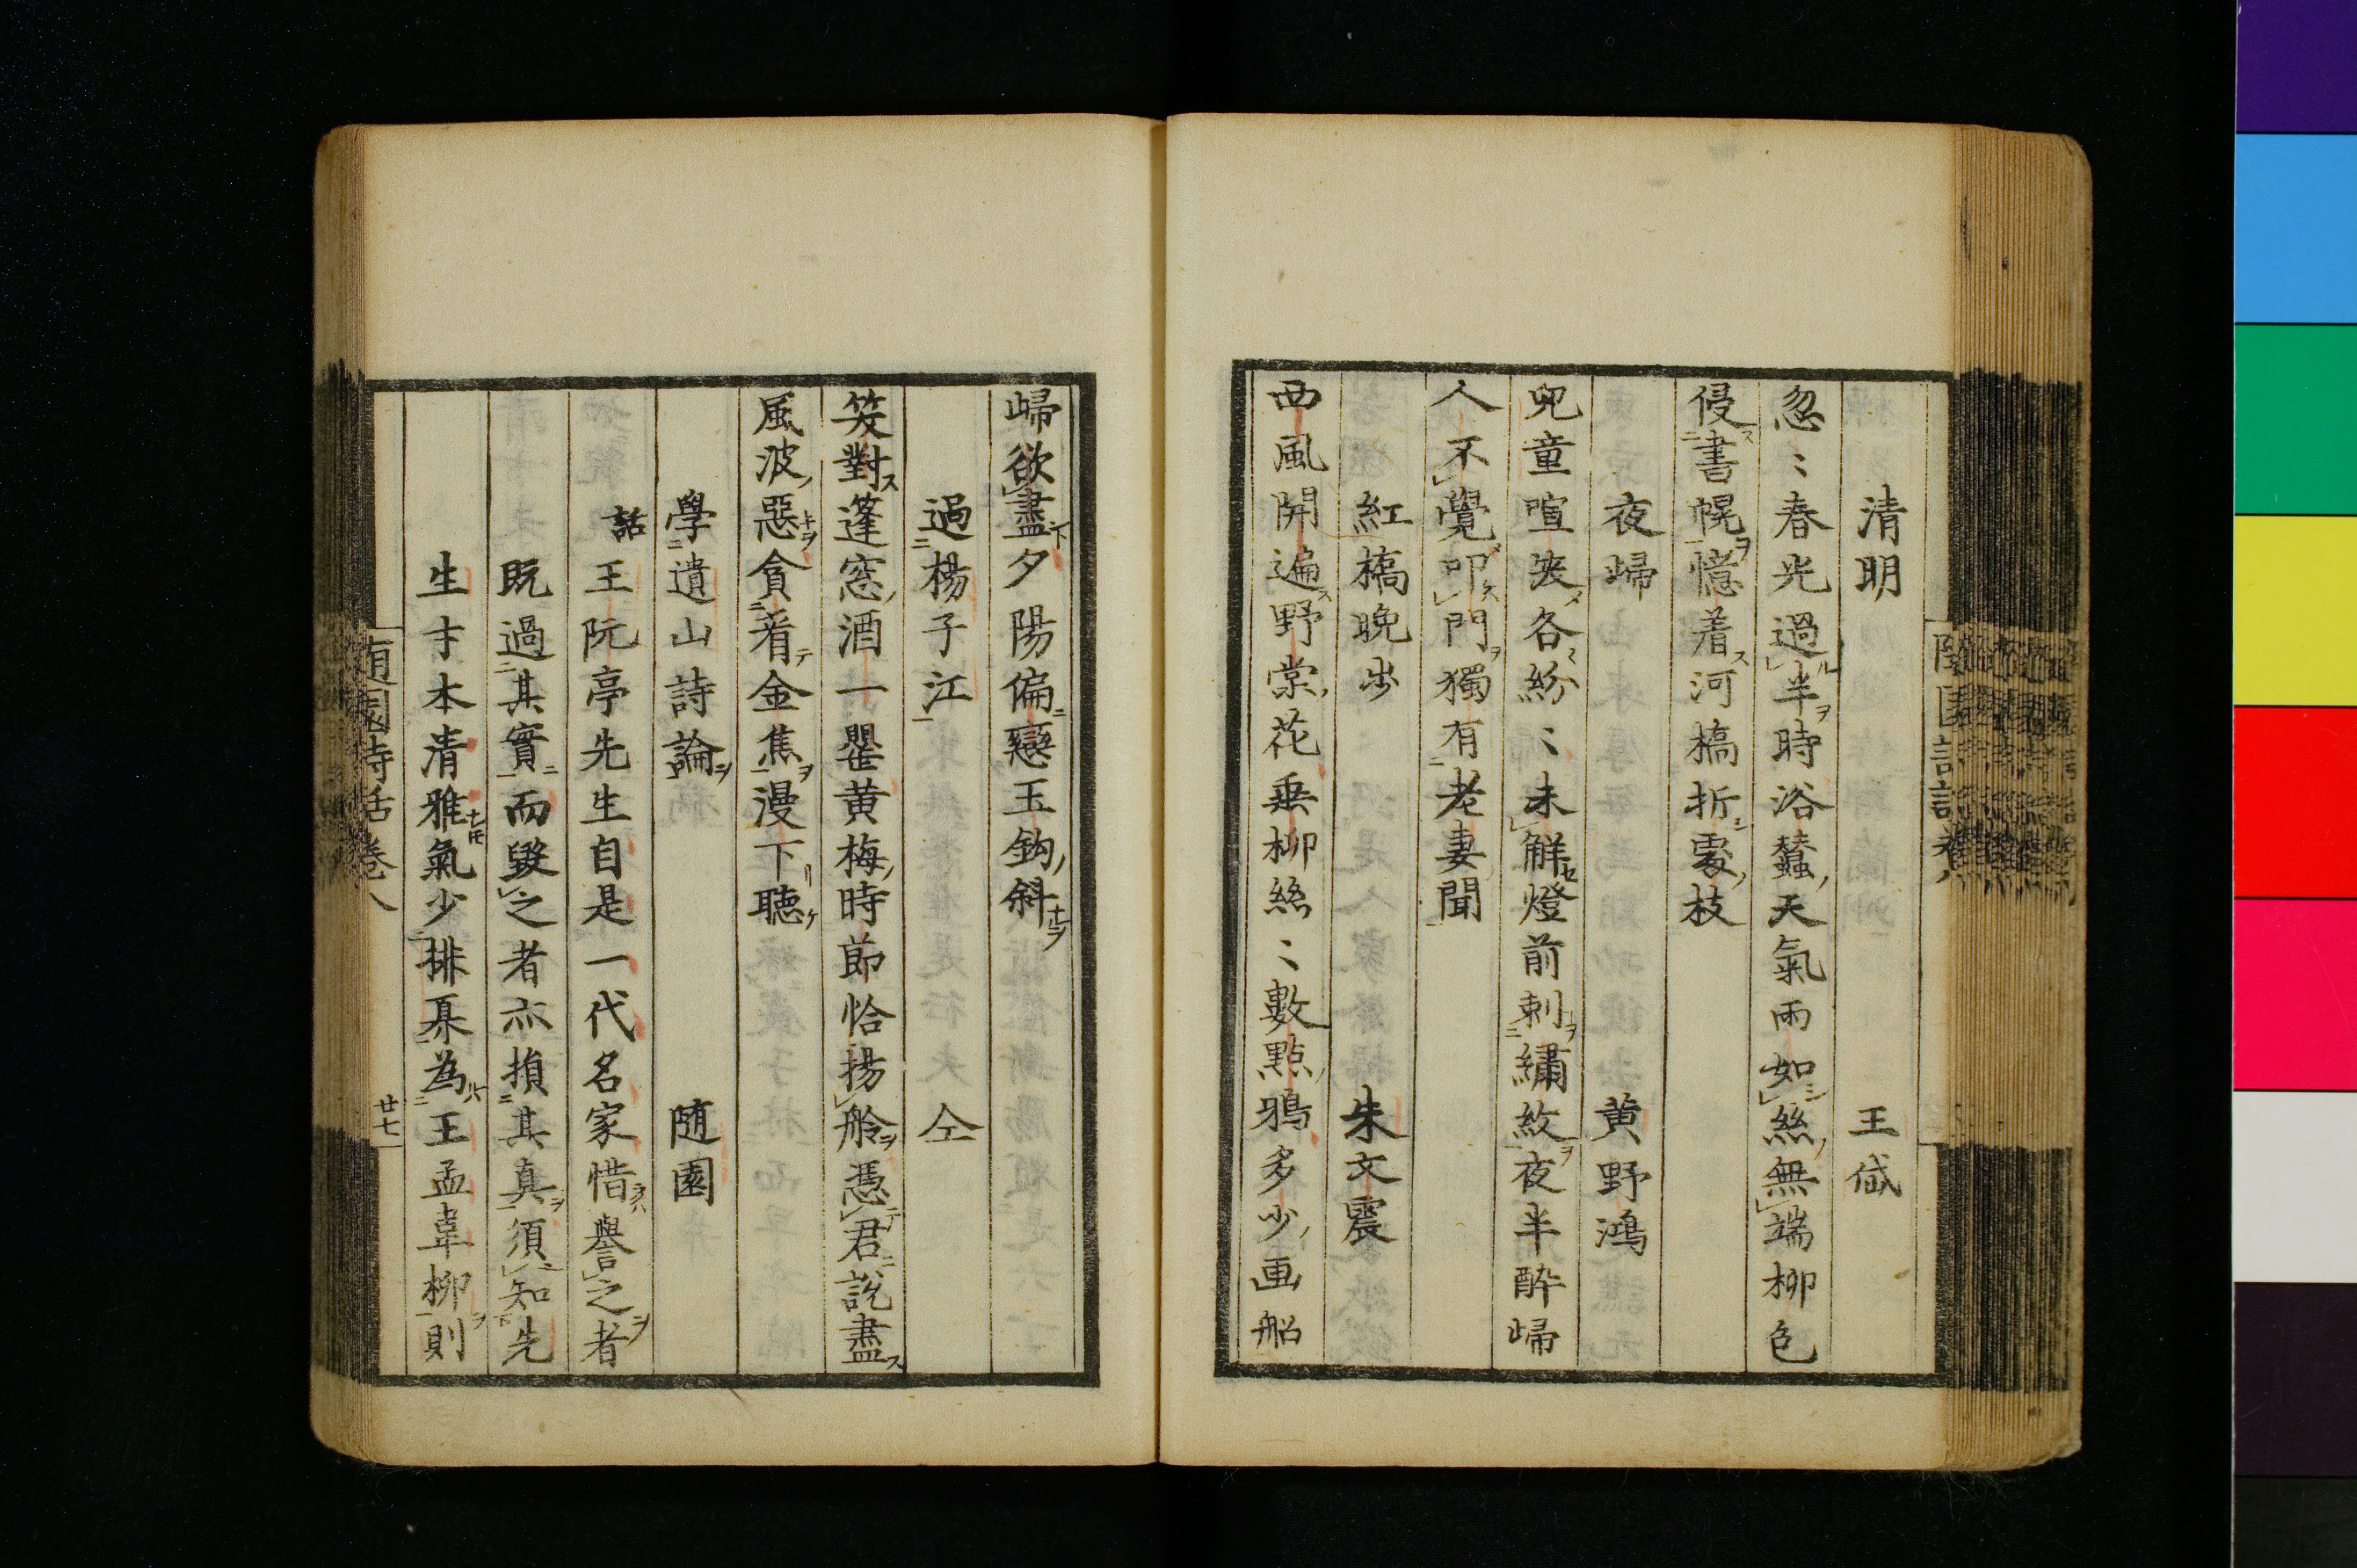 清明　王𢎞
忽〻春光過半時浴蠶天氣雨如絲無端柳色
侵書幌憶着河橋折處枝
夜歸　黄野鴻
兒童喧笑各紛〻未解燈前刺繡紋夜半醉歸
人不覺叩門獨有老妻聞
紅橋晚步　朱文震
西風開遍野棠花垂柳絲〻數點鴉多少画船
歸欲盡夕陽偏戀玉鈎斜
過楊子江　仝
笑對篷窓酒一罌黄梅時節恰揚舲憑君説盡
風波惡貪着金焦漫下聽
學遺山詩論　随園
話王阮亭先生自是一代名家惜譽之者
既過其實而毀之者亦損其真須知先
生才本清雅氣少排奡為王孟韋柳則
随園詩話巻八
廿七